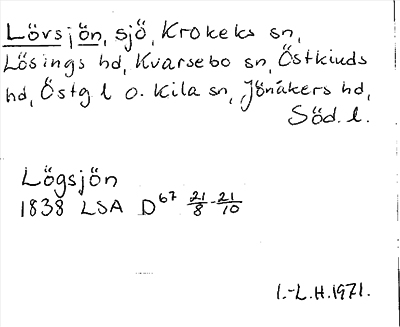 Lövsjön, sjö, Krokeks sn,
Lösings hd, Kvarsebo sn, Östkinds
hd, Östg l o. Kila sn, Jönåkers hd,
Söd. l.
Lögsjön
1838 LSA D67 21/8-21/10
I.-L.H.1971.